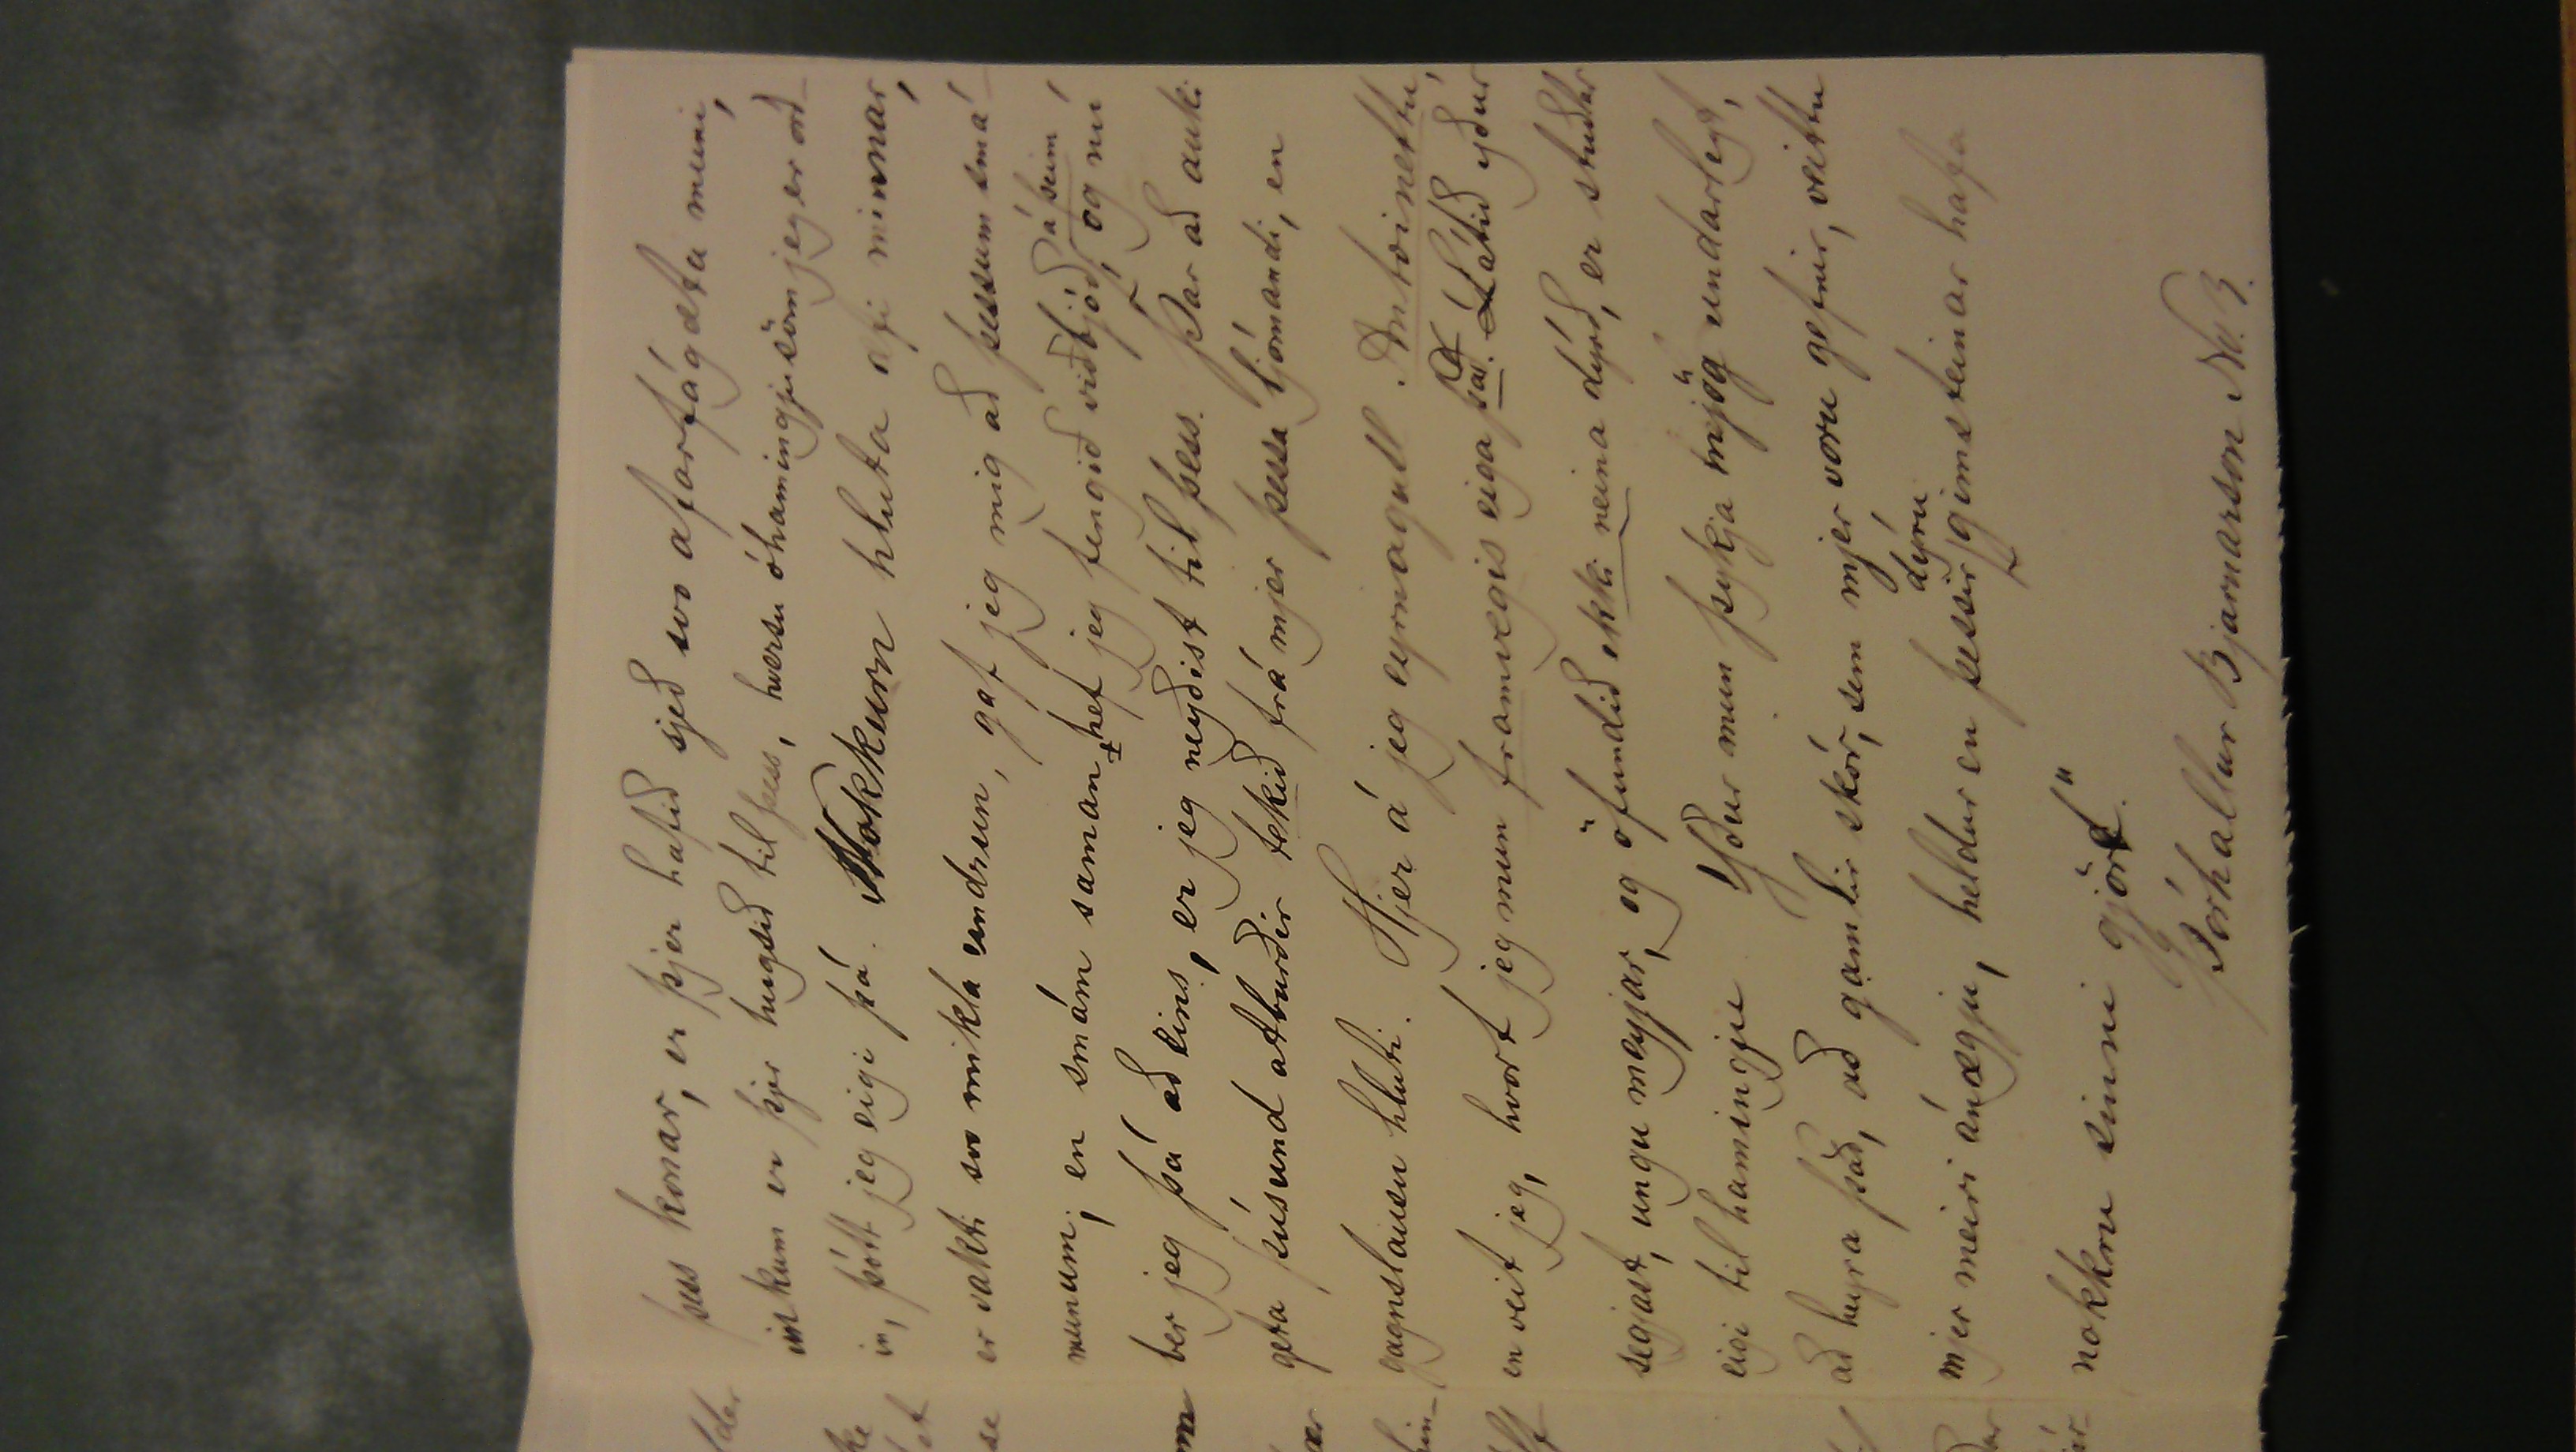 þess konar, er þjer hafið sjeð svo afarfágæta muni,
iskum er þjer hugsið til þess, hversu óhamingjusöm jeg er orð-
in, þótt jeg eigi þá. Nokkurn hluta afi minnar,
er vakti svo mikla undrun, gaf jeg mig að þessum smá-
munum, en smám saman hef jeg fengið viðbjóð á þeim, og nú
ber jeg þá að eins, er jeg neyðist til þess. Þar að auki
geta þúsund atburðir tekið frá mjer þessa ljómandi, en
gagnslausu hluti. Hjer á jeg eyrnagull Antoinettu,
en veit jeg, hvort jeg mun framvegis eiga það. Látið yður
segjast, ungu meyjar, og öfundið ekki neina dýrð, er stuðlar
eigi til hamingju. Yður mun þykja mjög undarlegt,
að heyra það, að gamlir skór, sem mjer voru gefnir, veittu
mjer meiri ánægju, heldur en þessir dýru gimsteinar hafa
nokkru sinni gjört."
Þórhallur Bjarnarson No. 3.
lder
ke
et
se
m
ær
hin-